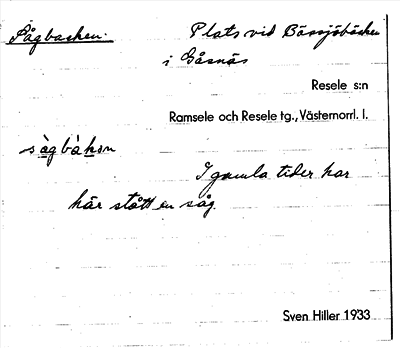 Sågbacken. Plats vid Bässjöbäcken
i Gåsnäs
Resele s:n
Ramsele och Resele tg., Västernorrl. l.
sàgbàkən
I gamla tider har
här stått en såg.
Sven Hiller 1933